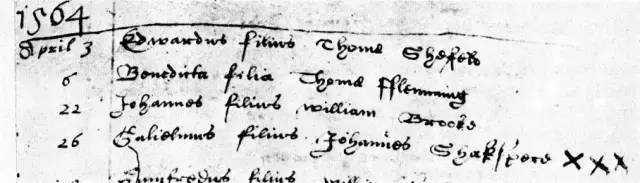 1564
April 3 Edwardus filius Thome Shefeld
6 Benedicta filia Thome fflemming
22 Johannes filius William Brooke
26 Gulielmus filius Johannes Shakspere XXX
filius